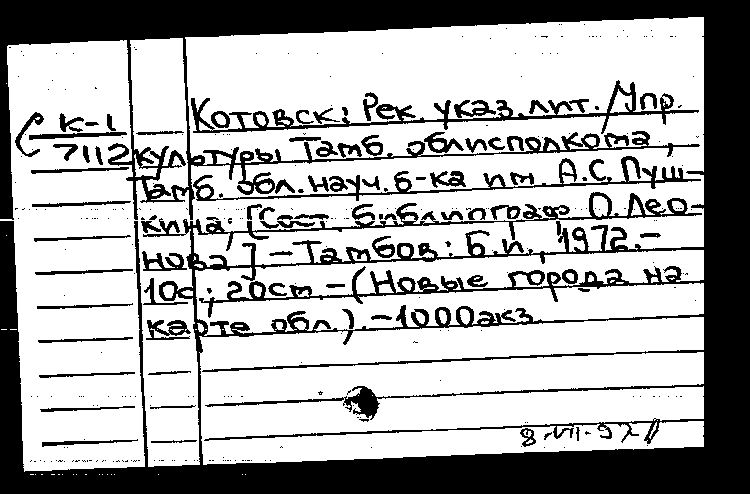 Котовск: Рек. указ. лит. / Упр.
К-1
7112
культуры Тамб. облисполкома,
Тамб. обл. науч. б-ка им. А.С. Пуш-
кина; [Сост. библиограф О. Лео-
нова]. – Тамбов: Б.и., 1972.–
10с.; 20см. – (Новые города на
карте обл.). – 1000экз.